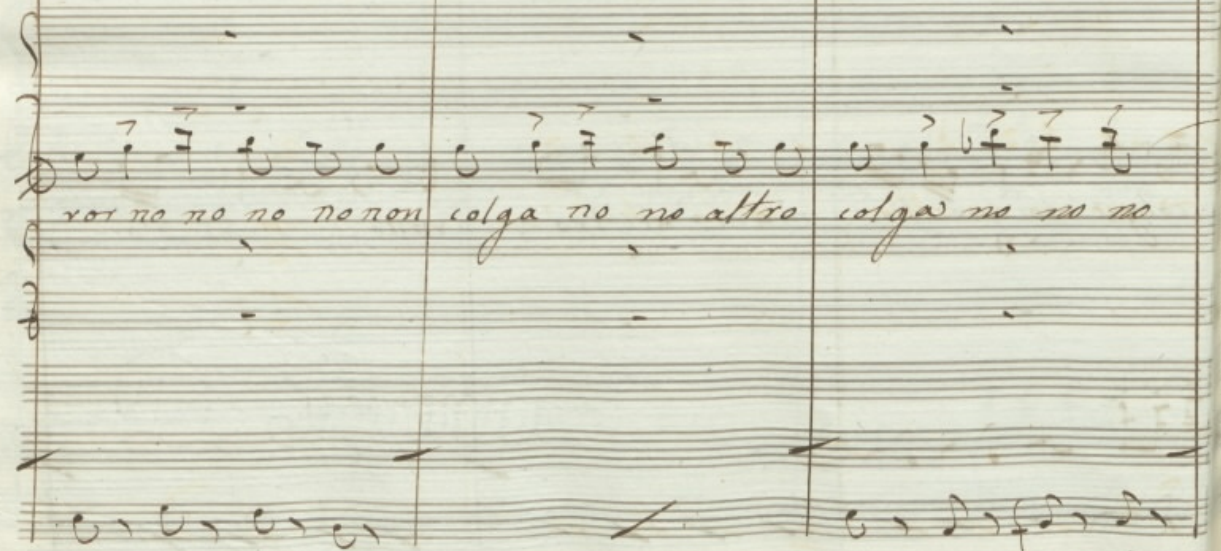 vor no no no no non colga no no altro colga no no no